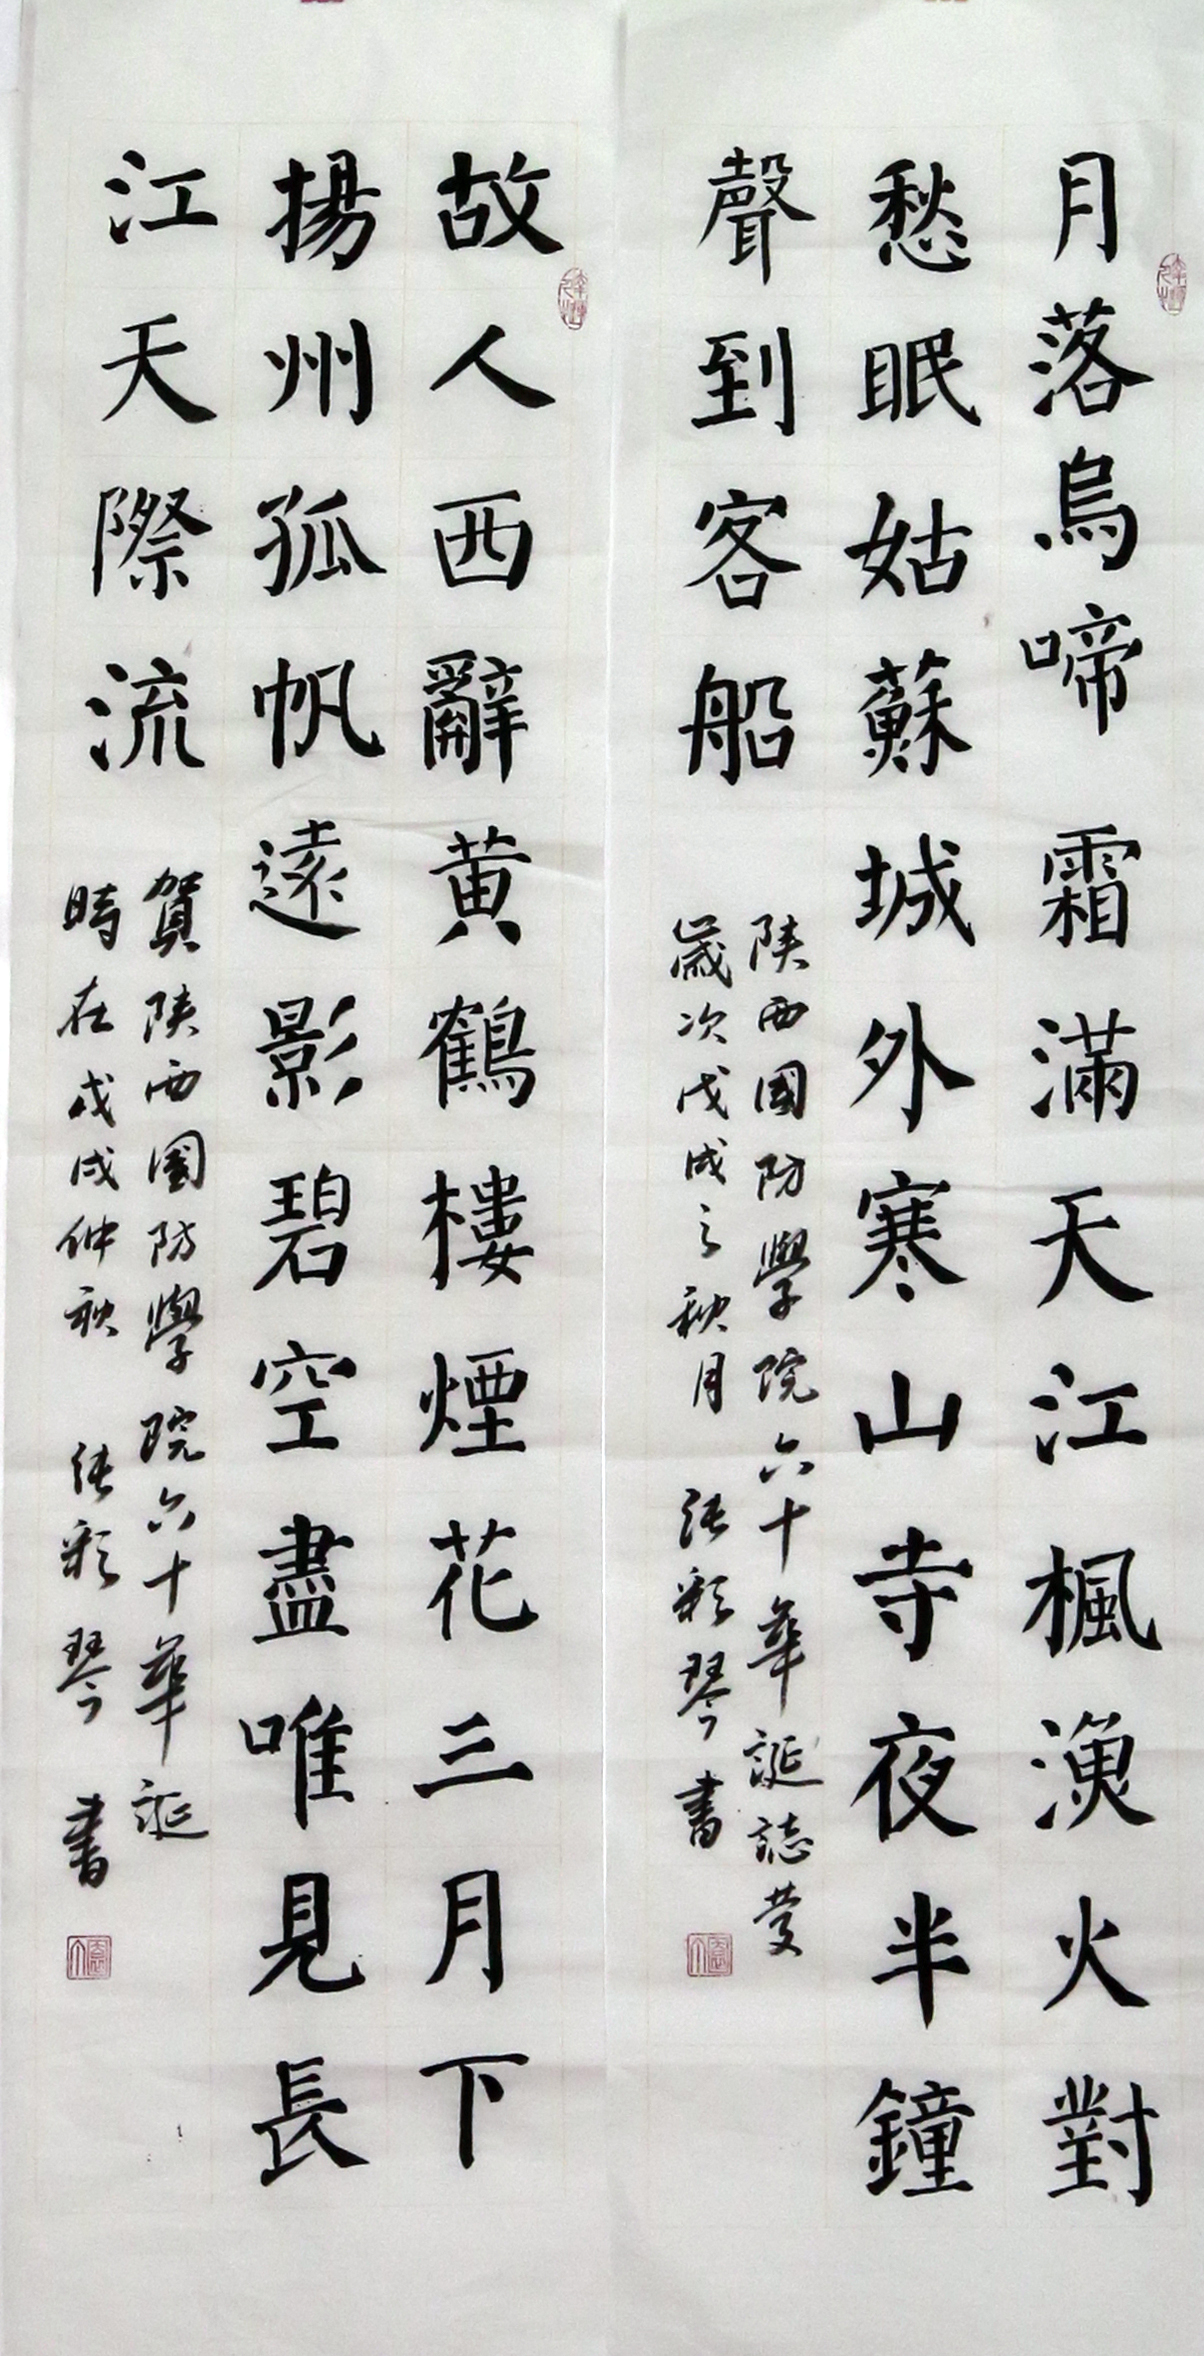 月落烏啼霜滿天江楓漁火對
愁眠姑蘇城外寒山寺夜半鐘
聲到客船
陝西國防學院六十華誕誌慶
歲次戊戌之秋月 張彩琴書
故人西辭黃鶴樓煙花三月下
揚州孤帆遠影碧空盡唯見長
江天際流
賀陝西國防學院六十華誕
時在戊戌仲秋 張彩琴書